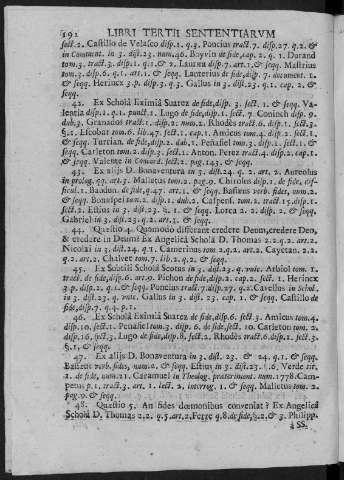 192 LIBRI TERTII SENTENTIARVM
sect.2. Castillo de Velasco disp.1. q.3. Poncius tract.7. disp.27. q.2. &
in Comment. in 3. dist.23. num.46. Boyvin de fide, cap.2. q.1. Durand
tom.3. tract.3. disp.1. q.1. & 2. Laurea disp.7. art.1. & seqq. Mastrius
tom.3. disp.6. q.1. art.1. & seqq. Lacterius de fide, disp.7. document. 1.
& seqq. Herincx 3.p. disp.3. q.3. Gallus in 3. dist.23. cap.1. q.1. &
seqq.
42. Ex Scholâ Eximiâ Suarez de fide, disp.3. sect.1. & seqq. Va-
lentia disp.1. q.1. punct.1. Lugo de fide, disp.1. sect.7. Coninch disp.9.
dub.3. Granados tract.1. disp.2. num.2. Rhodes tract.6. disp.1. sect.3.
§.1. Escobar tom.6. lib.47. sect.1. cap.1. Amicus tom.4. disp.2. sect.1. &
seqq. Turrian. de fide, disp.2. dub.1. Peñafiel tom.3. disp.1. sect.3. &
seqq. Carleton tom.2. disp.3. sect.1. Anton. Perez tract.4. disp.2. cap.1.
& seqq. Valente in Concord. sect.2. pag.143. & seqq.
43. Ex alijs D. Bonaventura in 3. dist.24. q.2. art.2. Aureolus
in prolog. art.3. Malletus tom.2. pag.9. Chirolus disp.1. de fide,
cul.1. Baudun. de fide, q.47. art.1. & seqq. Bassius verb. fides, num.2.
& seqq. Bonaspei tom.2. disp.1. dub.2. Caspens. tom.2. tract.15. disp.1.
sect.2. Estius in 3. dist.23. §.1. & seqq. Lorca 2.2. disp.2. & seqq.
Gabriel in 3. dist.23. q.2. art.3. & seqq.
44. Quæstio 4. Quomodo differant credere Deum, credere Deo,
& credere in Deum? Ex Angelicâ Scholâ D. Thomas 2.2. q.2. art.2.
Nicolai in 3. dist.24. q.1. Camerinus tom.2. q.2. art.2. Cayetan. 2.2.
q.2. art.2. Chalvet tom.7. lib.1. q.2. cap.2.
45. Ex Subtili Scholâ Scotus in 3. dist.23. q. unic. Arbiol tom.1.
tract. de fide, disp.6. art.9. Pichon de fide, disp.2. cap.2. sect.1. Herincx
3.p. disp.2. q.1. & seqq. Poncius tract.7. disp.27. q.2. Cavellus in Schol.
in 3. dist.23. q. unic. Gallus in 3. dist.23. cap.1. & seqq. Castillo de
fide, disp.7. q.4. p.1.
46. Ex Scholâ Eximiâ Suarez de fide, disp.6. sect.3. Amicus tom.4.
disp.10. sect.1. Peñafiel tom.3. disp.6. de fide, sect.10. Carleton tom.2.
disp.16. sect.3. Lugo de fide, disp.8. sect.2. Rhodes tract.6. disp.1. sect.3.
§.1. & seqq.
47. Ex alijs D. Bonaventura in 3. dist.23. & 24. q.1. & seqq.
Bassæus verb. fides, num.2. & seqq. Estius in 3. dist.23. §.6. Verde
2. de fide, num.21. Caramuel in Theolog. præterintent. num.1778. Cam-
petus p.1. tract.3. art.1. lect.2. interrog.1. & seqq. Malletus tom.2.
pag.9. & seqq.
48. Quæstio 5. An fides dæmonibus conveniat? Ex Angelicâ
Scholâ D. Thomas 2.2. q.5. art.2. Ferre q.8. de fide, §.2. & 3. Philipp.
à SS.